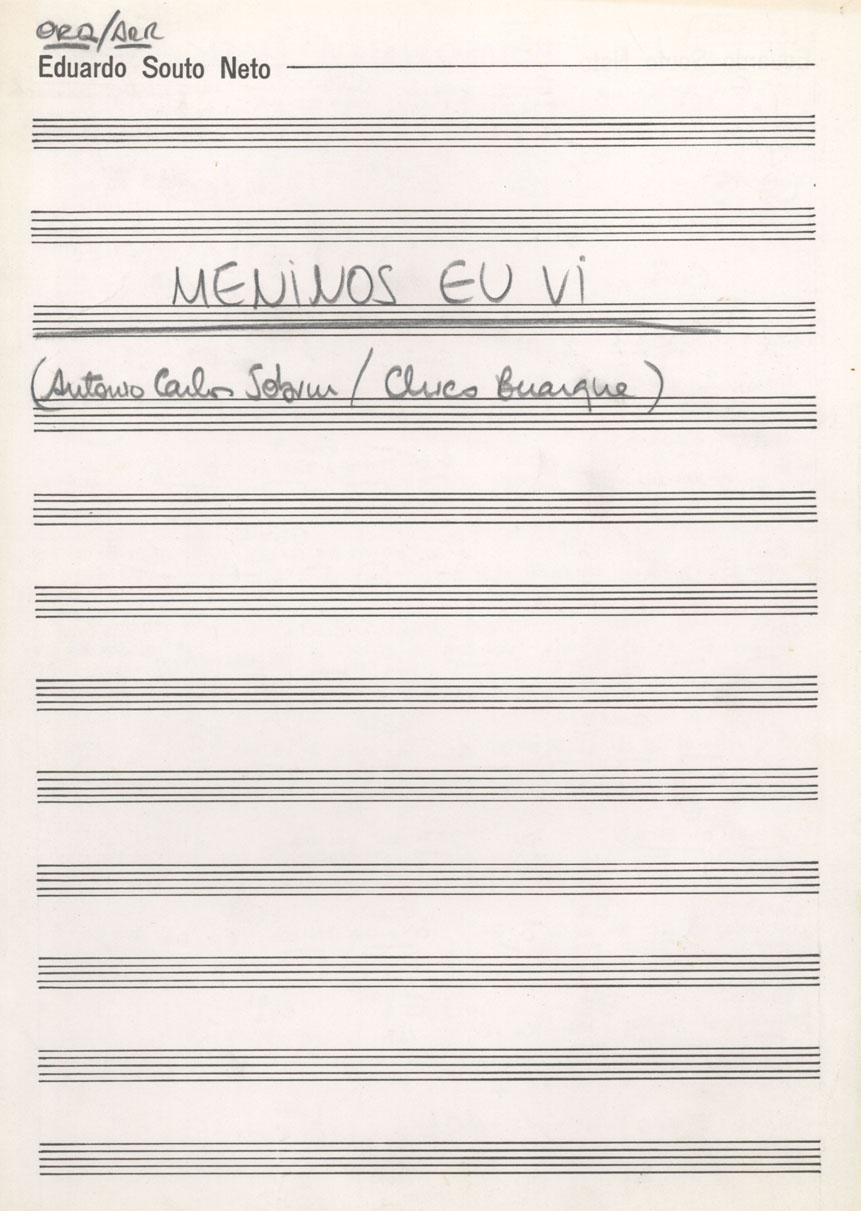 ORQ/ARR
Eduardo Souto Neto
MENINOS EU VI
(Antonio Carlos Jobim / Chico Buarque)